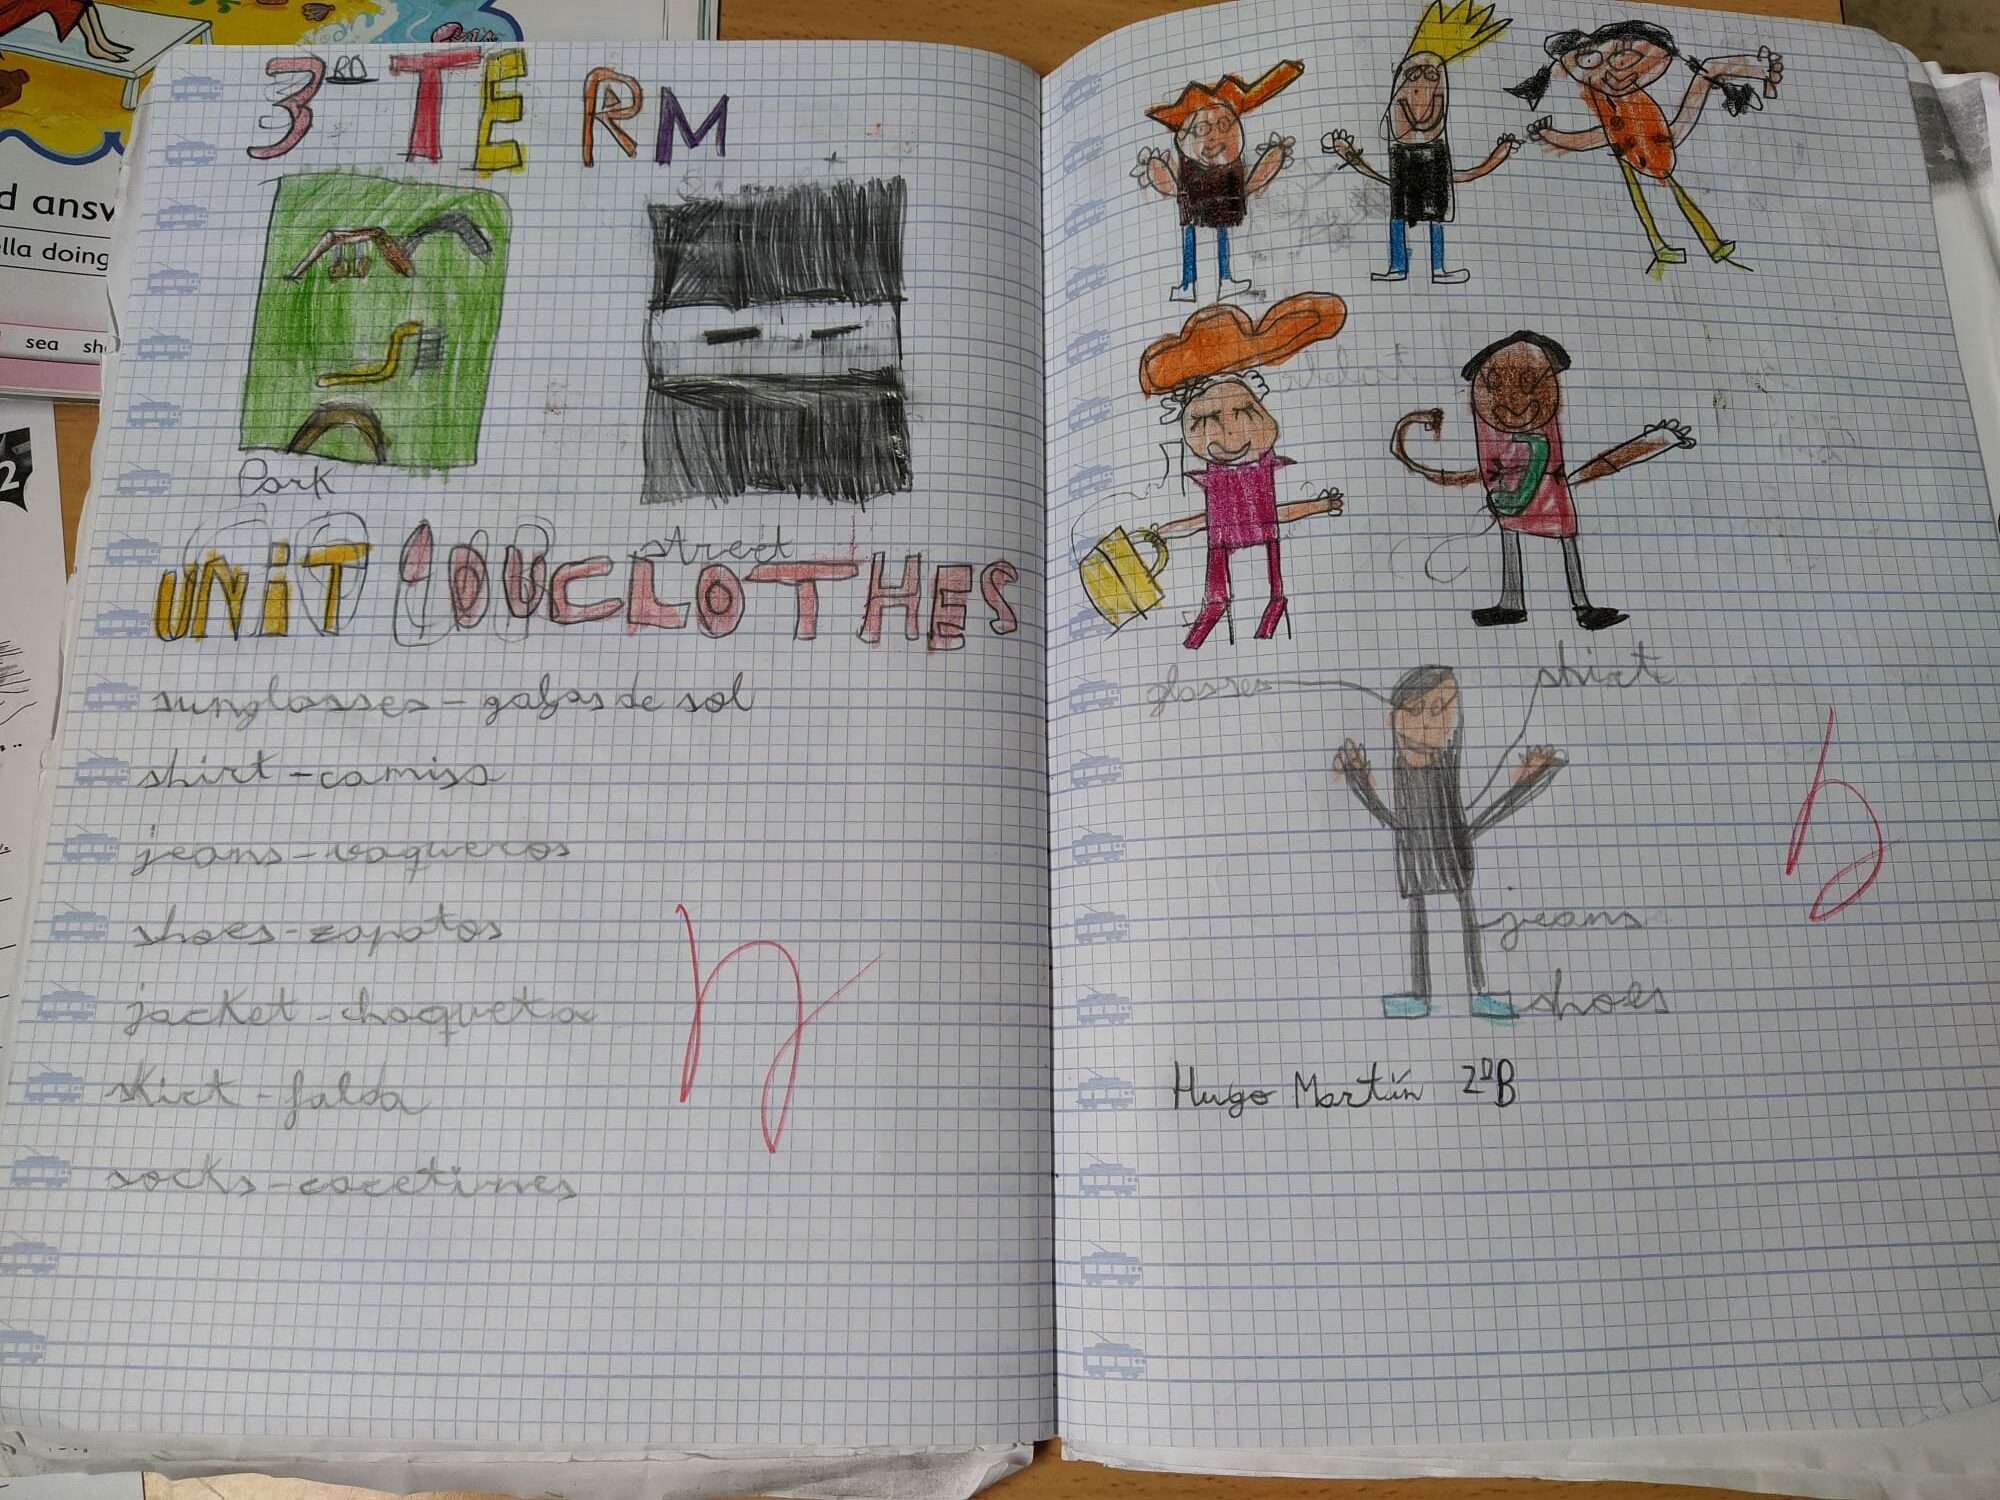 3RD TERM
Park
street
UNIT CLOTHES
sunglasses - gafas de sol
shirt - camisa
jeans - vaqueros
shoes - zapatos
jacket - chaqueta
skirt - falda
socks - carcetines
glasses
shirt
jeans
shoes
Hugo Martín 2ºB
d answ
ella doing
sea sh
2